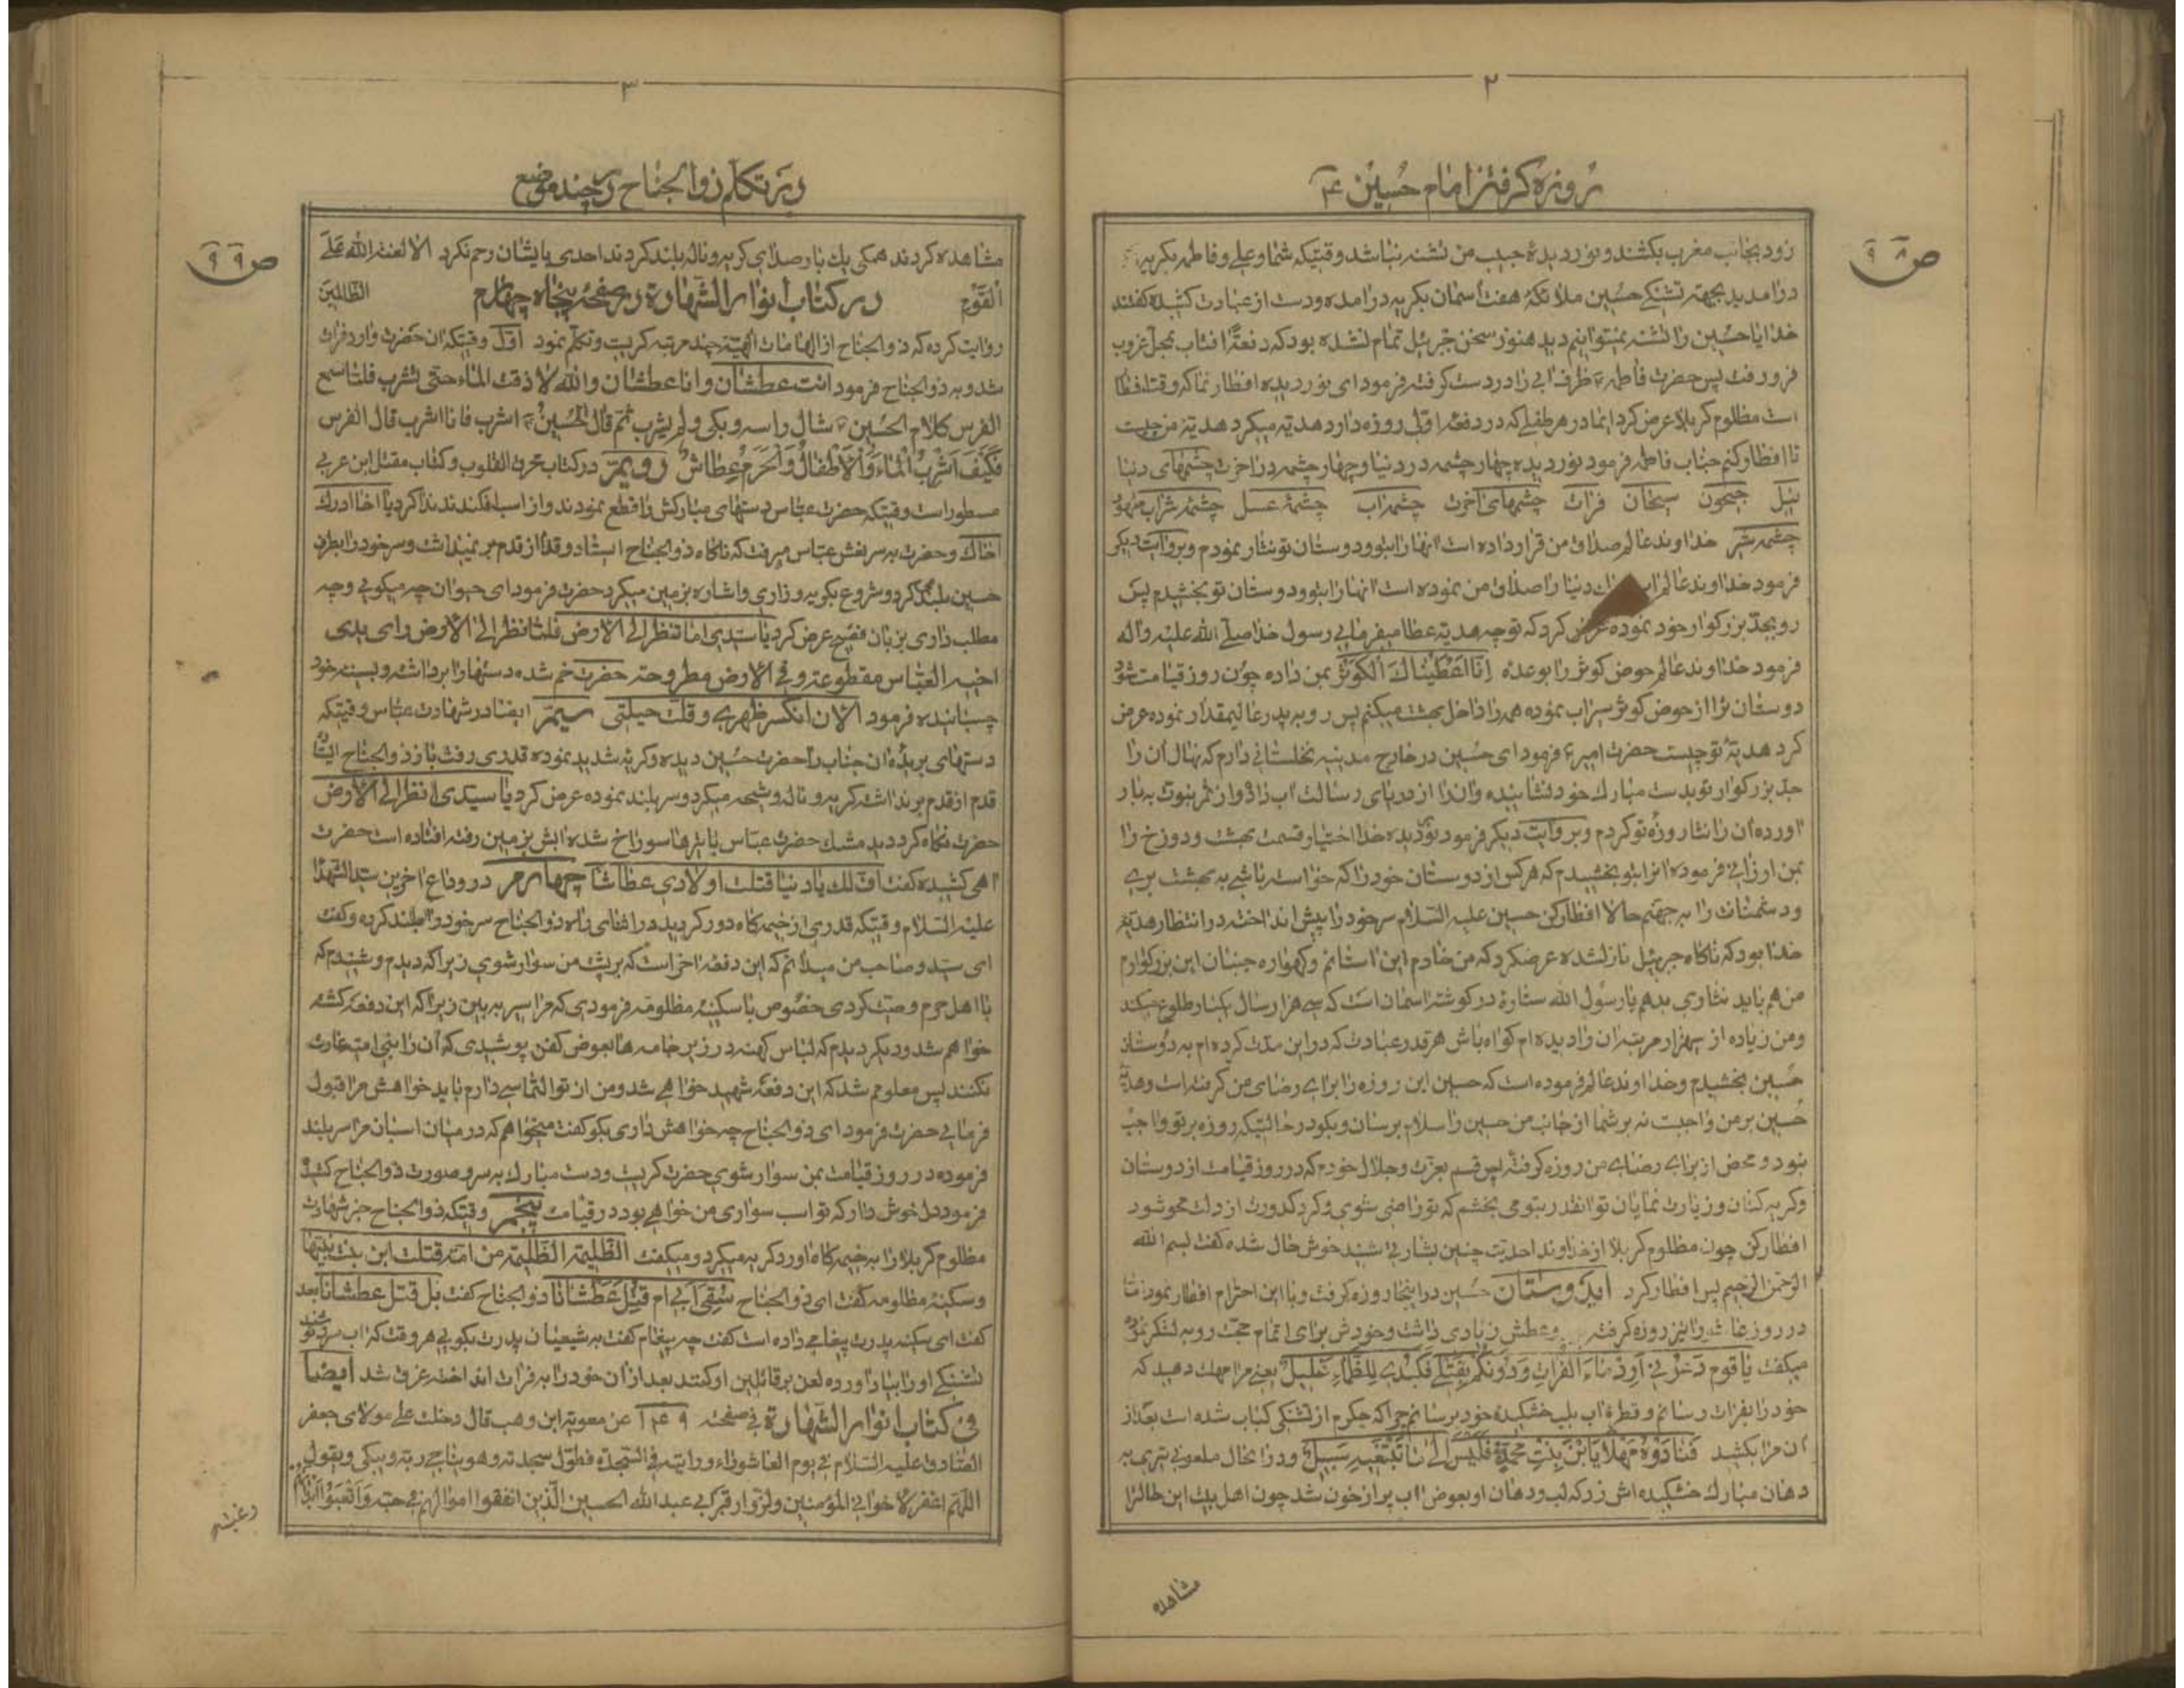 ۲
روزه گرفتن امام حسین ع
ص ۹۸
زود بجانب مغرب بکشند و نوردیدهٔ حبیب من تشنه نباشد وقتیکه شما و علی و فاطمه بگریه
درامدید بجهة تشنگی حسین ملائکهٔ هفت اسمان بگریه درامده و دست از عبادت کشیده گفتند
خدایا حسین را تشنه نمیتوانیم دید هنوز سخن جبرئیل تمام نشده بود که دفعةً افتاب بمحل غروب
فرو رفت پس حضرت فاطمه ظرف ابی را در دست گرفته فرمود ای نوردیده افطار نما که وقت افطار
است مظلوم کربلا عرض کرد ایمادر هر طفلی که در دفعه اول روزه دارد هدیه میکرد هدیهٔ من چیست
تا افطار کنم جناب فاطمه فرمود نوردیده چهار چشمه در دنیا و چهار چشمه در اخرت چشمهای دنیا
نیل جیحون سیحان فرات چشمهای اخرت چشمه اب چشمهٔ عسل چشمهٔ شراب طهور
چشمه شیر خداوند عالم صداق من قرار داده است انها را بتو و دوستان تو نثار نمودم و بروایت دیگر
فرمود خداوند عالم دنیا را صداق من نموده است انها را بتو و دوستان تو بخشیدم پس
رو بجد بزرکوار خود نموده عرض کرد که تو چه هدیه عطا میفرمایی رسول خدا صلی الله علیه واله
فرمود خداوند عالم حوض کوثر را بوعده انا اعطیناك الکوثر بمن داده چون روز قیامت شود
دوستان ترا از حوض کوثر سیراب نموده همه را داخل بهشت میکنم پس رو بپدر عالیمقدار نموده عرض
کرد هدیهٔ تو چیست حضرت امیر ع فرمود ای حسین در خارج مدینه نخلستانی دارم که نهال آن را
جد بزرکوار تو بدست مبارك خود نشانیده و انرا از دریای رسالت اب داده و از ثمر نبوت به بار
اورده ان را نثار روزهٔ تو کردم و بروایت دیگر فرمود نوردیده خدا اختیار قسمت بهشت و دوزخ را
بمن ارزانی فرموده انرا بتو بخشیدم که هر کس از دوستان خود را که خواسته باشی به بهشت بری
و دشمنانت را به جهنم حالا افطار کن حسین علیه السلام سر خود را پیش انداخته در انتظار هدیهٔ
خدا بود که ناگاه جبرئیل نازل شده عرض کرد که من خادم این استانم و گهواره جنبان این بزرکوارم
من هم باید نثاری بدهم یا رسول الله ستاره در گوشه اسمان است که سی هزار سال یکبار طلوع میکند
و من زیاده از سی هزار مرتبه ان را دیده ام کواه باش هر قدر عبادت که در این مدت کرده ام به دوستان
حسین بخشیدم و خداوند عالم فرموده است که حسین این روزه را برای رضای من گرفته است و هدیهٔ
حسین بر من واجبست نه بر شما از جانب من حسین را سلام برسان و بگو در حالتیکه روزه بر تو واجب
نبود و محض از برای رضای من روزه گرفتهٔ پس قسم بعزت و جلال خودم که در روز قیامت از دوستان
و گریه کنان و زیارت نمایان تو انقدر بتو می بخشم که تو راضی شوی و کرد کدورت از دلت محو شود
افطار کن چون مظلوم کربلا از خداوند احدیت چنین بشارتی شنید خوش حال شده گفت بسم الله
الرحمن الرحیم پس افطار کرد ایدوستان حسین در اینجا روزه گرفت و با این احترام افطار نمود اما
در روز عاشورا نیز روزه گرفته وعطش زیادی داشت و خودش برای اتمام حجت رو به لشکر نموده
میگفت یا قوم دعونی ارد ماء الفرات ودونکم بقتلی فکبدی للظماء غلیل یعنی مرا مهلت دهید که
خود را بفرات رسانم و قطرهٔ اب بلب خشکیدهٔ خود برسانم چرا که جگرم از تشنگی کباب شده است بعد از
ان مرا بکشید فنادوه مهلا یابن بنت محمد فلیس الی ما تبتغیه سبیل و در انحال ملعونی تیری به
دهان مبارك خشکیده اش زد که لب و دهان او بعوض اب پر از خون شد چون اهل بیت این حال را
مشاهده
۳
در تکلم ذوالجناح در چند موضع
ص ۹۹
مشاهده کردند همکی یك بار صدای گریه و ناله بلند کردند احدی بایشان رحم نکرد الا لعنة الله علی
القوم الظالمین در کتاب انوار الشهادة در صفحهٔ پنجاه چهارم
روایت کرده که ذوالجناح از الهامات الهیه چند مرتبه گریست و تکلم نمود اول وقتیکه ان حضرت وارد فرات
شد و به ذوالجناح فرمود انت عطشان وانا عطشان والله لا ذقت الماء حتی تشرب فلما سمع
الفرس کلام الحسین شال راسه وبکی ولم یشرب ثم قال الحسین اشرب فانا اشرب قال الفرس
فکیف اشرب الماء والاطفال والحرم عطاش دویم در کتاب محرق القلوب و کتاب مقتل ابن عربی
مسطور است وقتیکه حضرت عباس دستهای مبارکش را قطع نمودند و از اسب افکندند ندا کرد یا اخا ادرك
اخاك و حضرت به سر نعش عباس میرفت که ناگاه ذوالجناح ایستاد و قدم از قدم بر نمیداشت و سر خود را بطرف
حسین بلند کرد و شروع بگریه و زاری و اشاره بزمین میکرد حضرت فرمود ای حیوان چه میکوئی و چه
مطلب داری بزبان فصیح عرض کرد یا سیدی اما تنظر الی الارض فلما نظر الی الارض رای یدی
اخیه العباس مقطوعة وفی الارض مطروحة حضرت خم شده دستها را برداشته و بسینه خود
چسبانیده فرمود الان انکسر ظهری وقلت حیلتی سیم ایضا در شهادت عباس وقتیکه
دستهای بریدهٔ ان جناب را حضرت حسین دیده و گریهٔ شدید نموده قدری رفت باز ذوالجناح ایستاد
قدم از قدم برنداشت گریه و ناله و شیهه میکرد و سر بلند نموده عرض کرد یا سیدی انظر الی الارض
حضرت نگاه کرد دید مشك حضرت عباس با تیرها سوراخ شده ابش بزمین رفته افتاده است حضرت
اهی کشیده گفت اف لك یا دنیا قتلت اولادی عطاشا چهارم در وداع اخرین سید الشهدا
علیه السلام وقتیکه قدری از خیمه گاه دور گردید در اثنای راه ذوالجناح سر خود را بلند کرده و گفت
ای سید و صاحب من میدانم که این دفعه اخر است که بر پشت من سوار شوی زیرا که دیدم و شنیدم که
با اهل حرم وصیت کردی خصوص با سکینهٔ مظلومه فرمودی که مرا سیر به بین زیرا که این دفعه کشته
خواهم شد و دیگر دیدم که لباس کهنه در زیر جامه ها بعوض کفن پوشیدی که آن را بنی امیه غارت
نکنند پس معلوم شد که این دفعه شهید خواهی شد و من از تو التماسی دارم باید خواهش مرا قبول
فرمائی حضرت فرمود ای ذوالجناح چه خواهش داری بگو گفت میخواهم که در میان اسبان مرا سر بلند
فرموده در روز قیامت بمن سوار شوی حضرت گریست و دست مبارك به سر و صورت ذوالجناح کشید
فرمود دل خوش دار که تو اسب سواری من خواهی بود در قیامت پنجم وقتیکه ذوالجناح خبر شهادت
مظلوم کربلا را به خیمه گاه اورد گریه میکرد و میگفت الظلیمة الظلیمة من امة قتلت ابن بنت نبیها
و سکینهٔ مظلومه گفت ای ذوالجناح سقی ابی ام قتل عطشانا ذوالجناح گفت بل قتل عطشانا بعد
گفت ای سکینه پدرت پیغامی داده است گفت چه پیغام گفت به شیعیان پدرت بگوئی هر وقت که اب سرد نوشند
تشنگی او را بیاد اورده لعن بر قاتلین او کنند بعد از ان خود را به فرات انداخته غرق شد ایضا
فی کتاب انوار الشهادة فی صفحة ۱۴۹ عن معویة ابن وهب قال دخلت علی مولای جعفر
الصادق علیه السلام فی یوم العاشوراء ورایته فی السجدة فطول سجدته وهو یناجی ربه ویبکی ویقول
اللهم اغفر لاخوانی المؤمنین ولزوار قبر ابی عبد الله الحسین الذین انفقوا اموالهم فی حبه واتعبوا ابدانهم